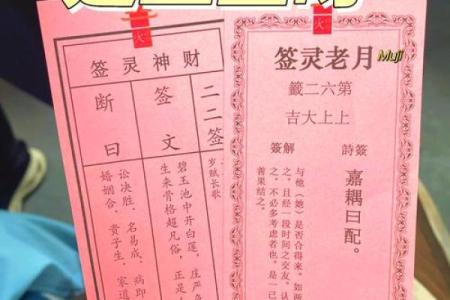 火
月老灵签
Muji
第六二籤
上上大吉
簽詩
嘉耦曰配。
簽解
与他（她）是否合得来。如两
之，且经一段时间之交友。认
之，不必多考虑者也。是一已
善果结之。
火
财神灵签
二二签
岁赋长歌
签文
碧玉池中开白莲，庄严
生来骨格超凡俗，正是
断曰
讼决胜，名易成，病即
婚姻合，贵子生，家道